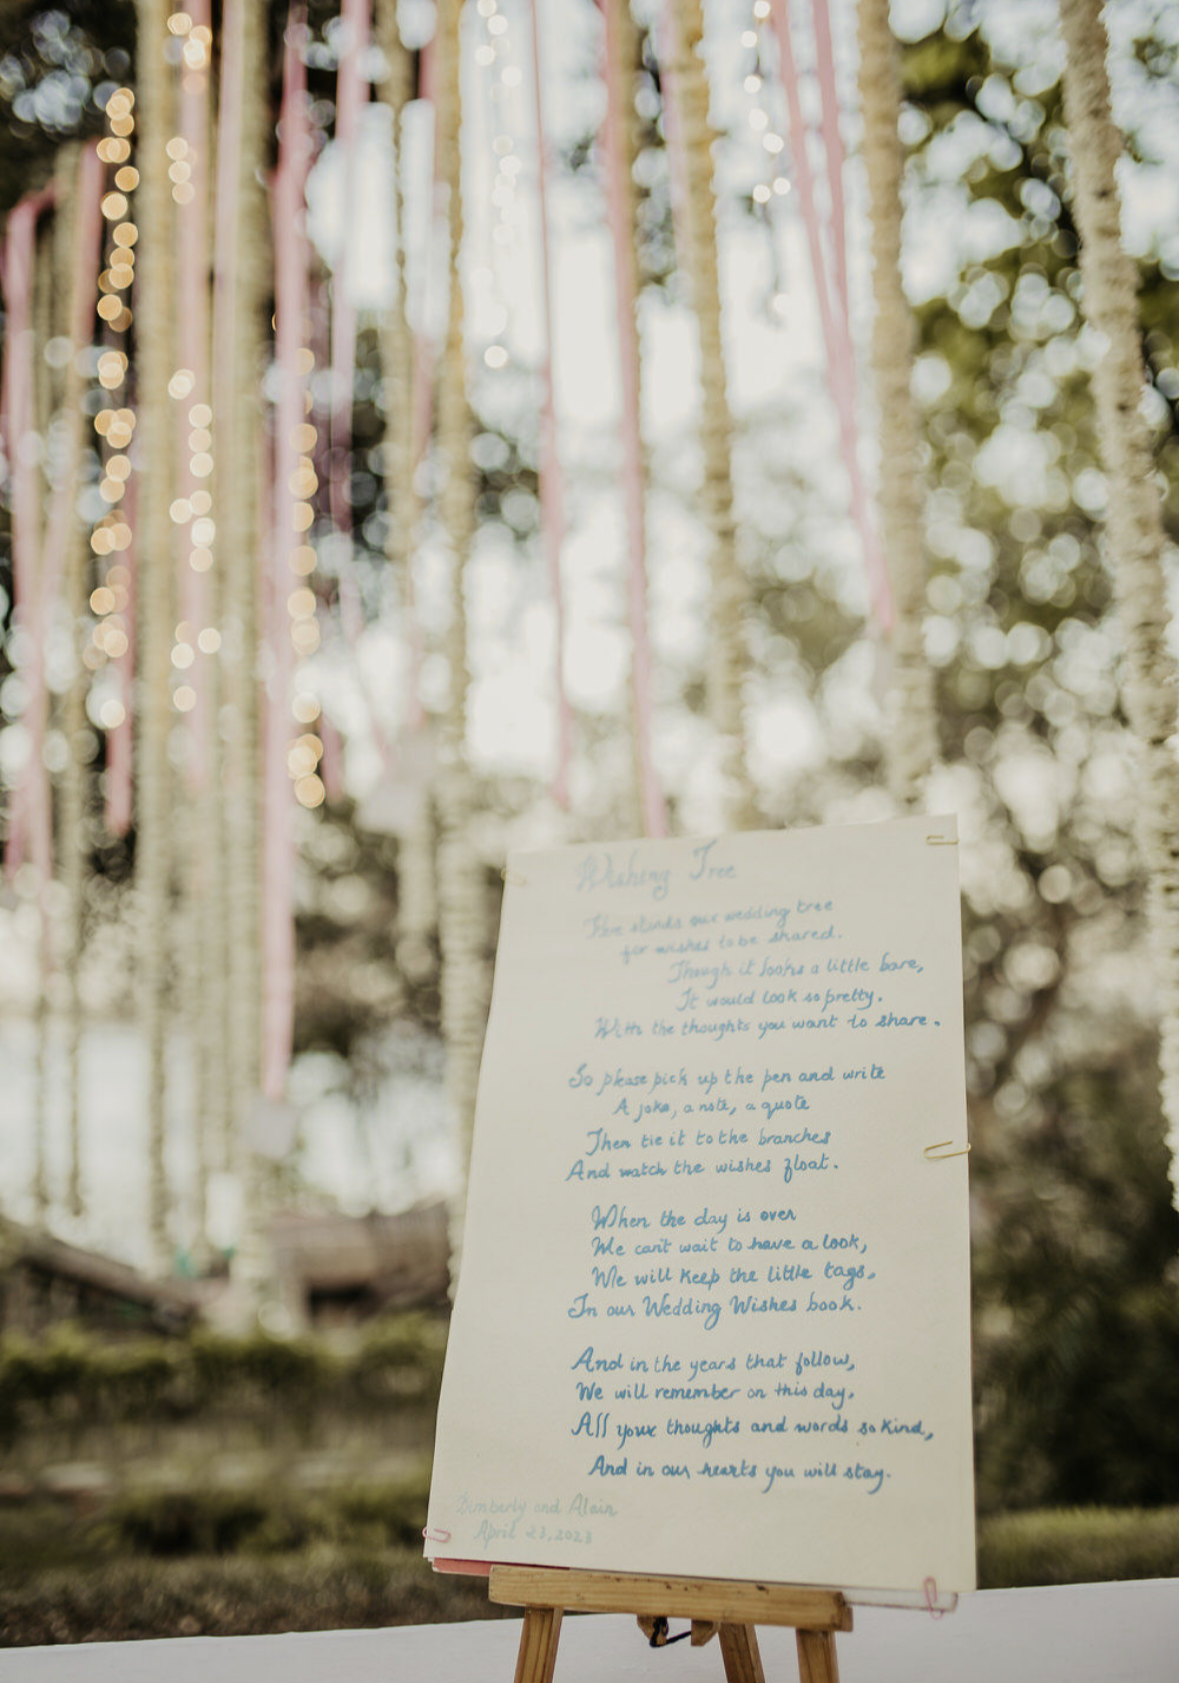 Wishing Tree
Here stands our wedding tree
for wishes to be shared.
Though it looks a little bare,
It would look so pretty.
With the thoughts you want to share.
So please pick up the pen and write
A joke, a note, a quote
Then tie it to the branches
And watch the wishes float.
When the day is over
We can't wait to have a look,
We will keep the little tags,
In our Wedding Wishes book.
And in the years that follow,
We will remember on this day,
All your thoughts and words so kind,
And in our hearts you will stay.
and Alain
April 23, 2023